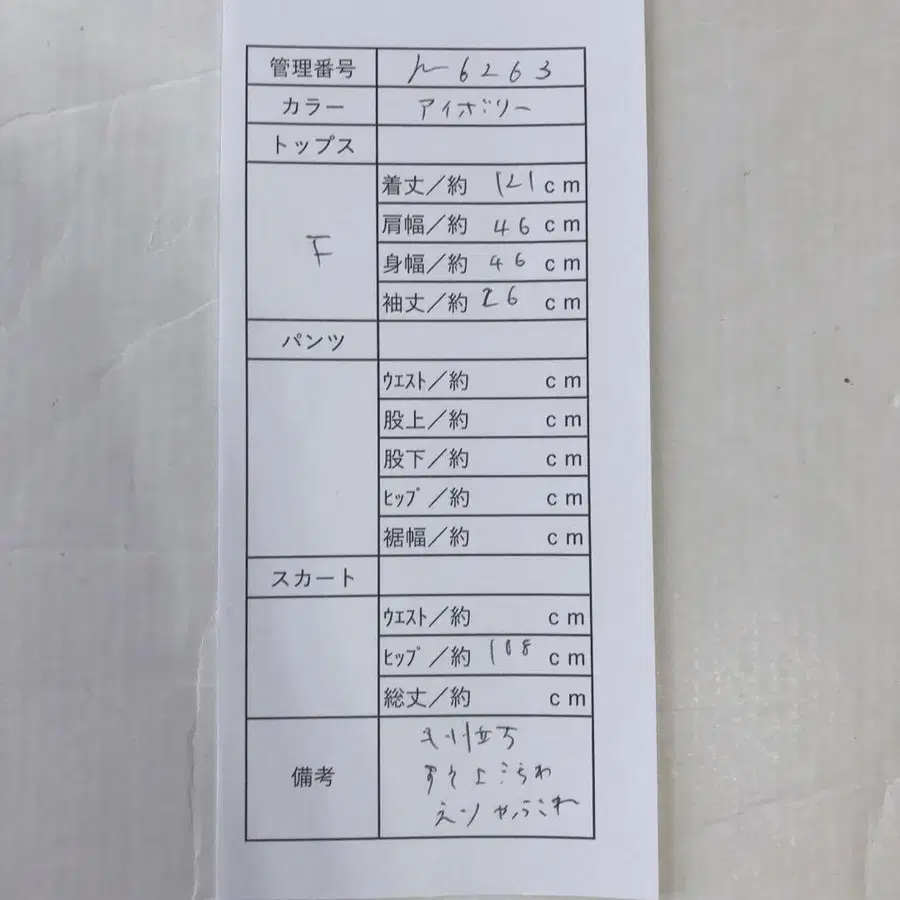 管理番号 h6263
カラー アイボリー
トップス
F
着丈／約 121 cm
肩幅／約 46 cm
身幅／約 46 cm
袖丈／約 26 cm
パンツ
ウエスト／約 cm
股上／約 cm
股下／約 cm
ヒップ／約 cm
裾幅／約 cm
スカート
ウエスト／約 cm
ヒップ／約 108 cm
総丈／約 cm
備考
すそよごれ